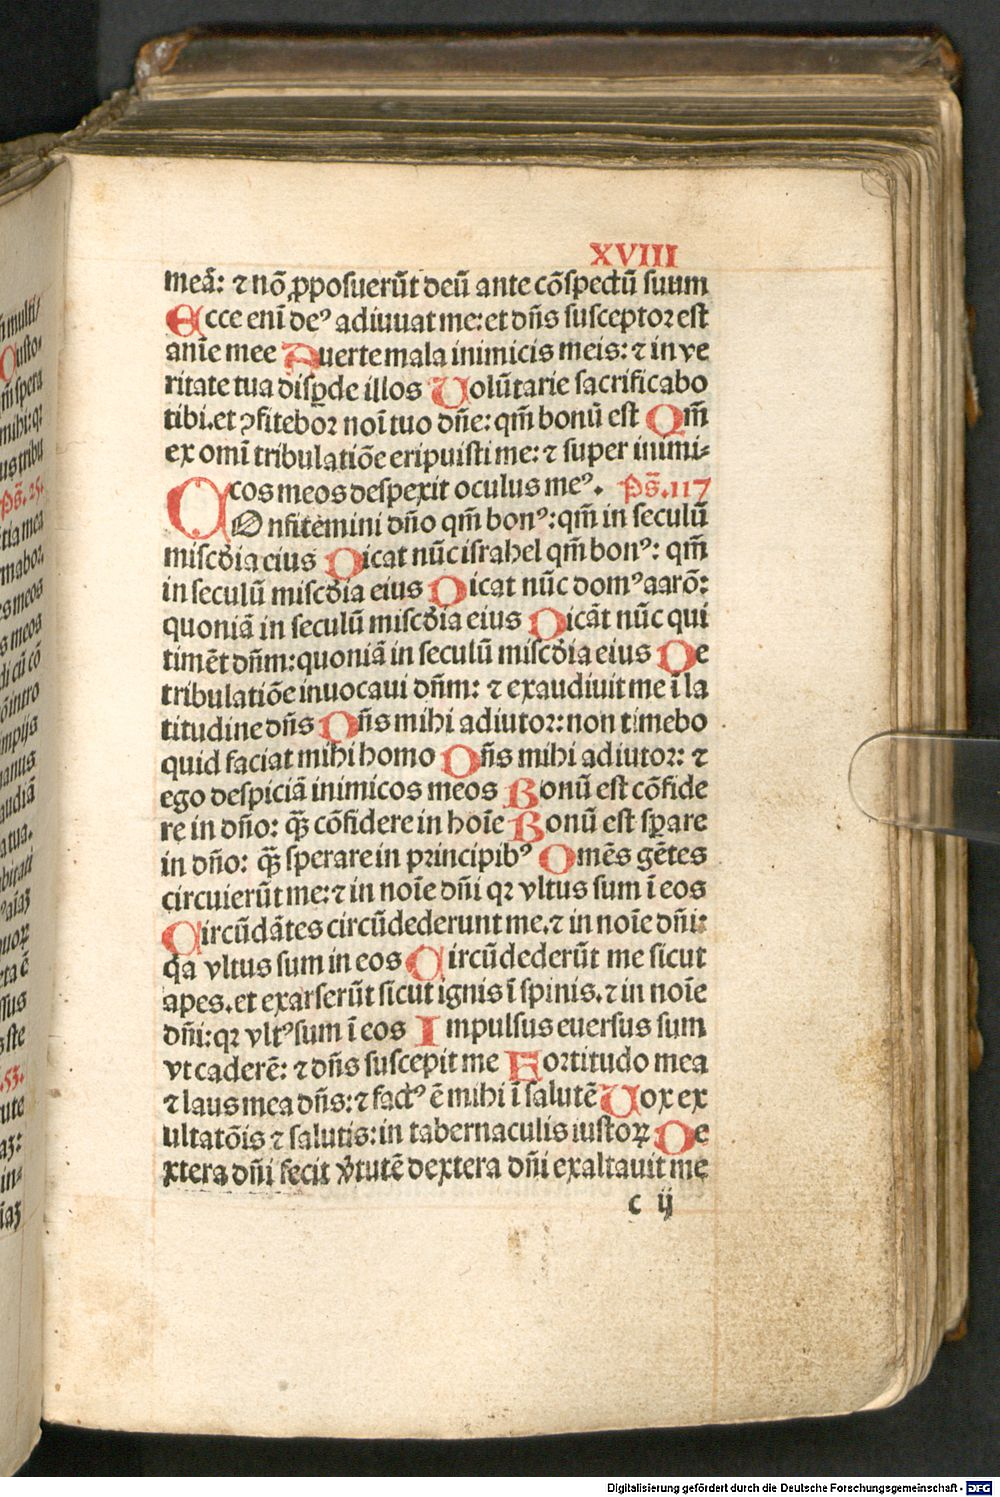 XVIII
meā: ⁊ nō ꝓposuerūt deū ante cōspectū suum
Ecce enī deꝰ adiuuat me: et dn̄s susceptoꝛ est
anīe mee Auerte mala inimicis meis: ⁊ in ve
ritate tua disꝑde illos Uolūtarie sacrificabo
tibi. et ꝯfiteboꝛ noī tuo dn̄e: qm̄ bonū est Qm̄
ex omī tribulatiōe eripuisti me: ⁊ super inimi⸗
cos meos despexit oculus meꝰ. Ps̄. 117
COnfitemini dn̄o qm̄ bonꝰ: qm̄ in seculū
miscd̄ia eius Dicat nūc israhel qm̄ bonꝰ: qm̄
in seculū miscd̄ia eius Dicat nūc domꝰ aarō:
quoniā in seculū miscd̄ia eius Dicāt nūc qui
timēt dn̄m: quoniā in seculū miscd̄ia eius De
tribulatiōe inuocaui dn̄m: ⁊ exaudiuit me ī la
titudine dn̄s Dn̄s mihi adiutoꝛ: non timebo
quid faciat mihi homo Dn̄s mihi adiutoꝛ: ⁊
ego despiciā inimicos meos Bonū est cōfide
re in dn̄o: qᷓ̄ cōfidere in hoīe Bonū est sꝑare
in dn̄o: qᷓ̄ sperare in pꝛincipibꝰ Omēs gētes
circuierūt me: ⁊ in noīe dn̄i qꝛ vltus sum ī eos
Circūdātes circūdederunt me. ⁊ in noīe dn̄i:
qa vltus sum in eos Circūdederūt me sicut
apes. et exarserūt sicut ignis ī spinis. ⁊ in noīe
dn̄i: qꝛ vltꝰ sum ī eos Impulsus euersus sum
vt caderē: ⁊ dn̄s suscepit me Foꝛtitudo mea
⁊ laus mea dn̄s: ⁊ factꝰ ē mihi ī salutē Uox ex
ultatōis ⁊ salutis: in tabernaculis iustoꝝ De
xtera dn̄i fecit v̓tutē dextera dn̄i exaltauit me
c ij
Digitalisierung gefördert durch die Deutsche Forschungsgemeinschaft - DFG